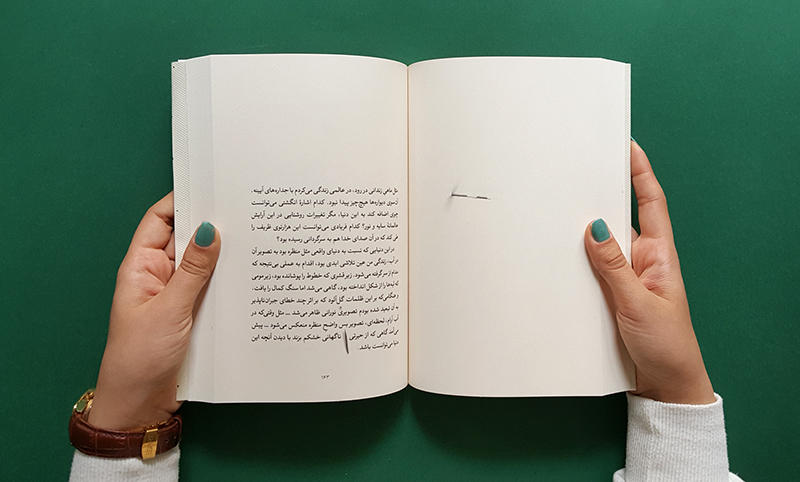 مثل ماهی زندانی در رود، در عالمی زندگی می‌کردم با جداره‌های آیینه.
آن‌سوی دیواره‌ها هیچ‌چیز پیدا نبود. کدام اشارهٔ انگشتی می‌توانست
چیزی اضافه کند به این دنیا، مگر تغییرات روشنایی در این آرایش
ماسانهٔ سایه و نور؟ کدام فریادی می‌توانست این هزارتوی ظریف را
فرو کند که در آن صدای خدا هم به سرگردانی رسیده بود؟
در این دنیایی که نسبت به دنیای واقعی مثل منظره بود به تصویر آن
در آب، زندگی من عین تلاشی ابدی بود، اقدام به عملی بی‌نتیجه که
مدام از سر گرفته می‌شود. زیر قشری که خطوط را پوشانده بود، زیر مومی
که لبه‌ها را از شکل انداخته بود، گاهی می‌شد اما سنگ کمال را یافت.
هنگامی‌که بر این ظلمات گل‌آلود که بر اثر چند خطای جبران‌ناپذیر
به آن تبعید شده بودم تصویری نورانی ظاهر می‌شد ... مثل وقتی‌که در
آب آرام، لحظه‌ای، تصویر بس واضح منظره منعکس می‌شود ... پیش
می‌آمد گاهی که از حیرتی ناگهانی خشکم بزند با دیدن آنچه این
دنیا می‌توانست باشد.
۱۶۳